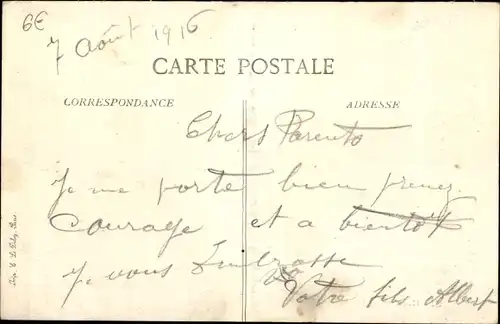 6€
7 Août 1916
CARTE POSTALE
CORRESPONDANCE
ADRESSE
Chers Parents
Je me porte bien prenez
Courage et a bientot
Je vous Embrasse
Votre fils Albert